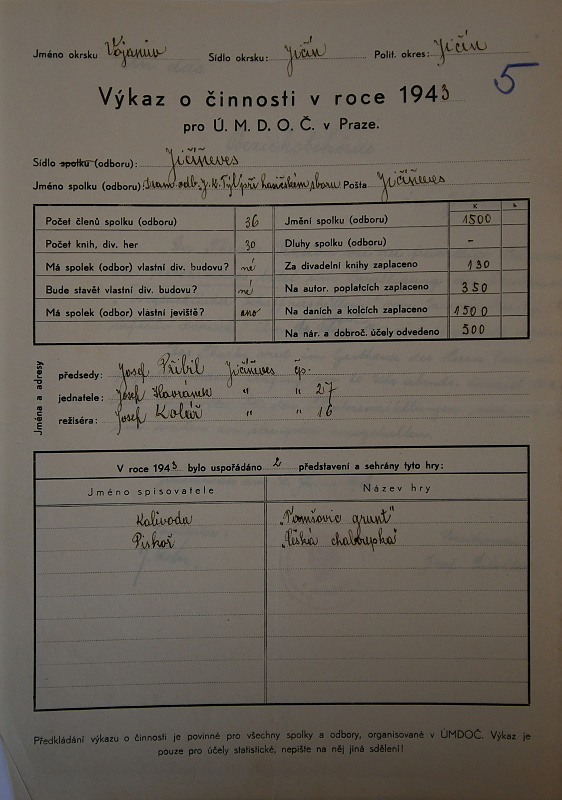 Jméno okrsku Vojanův Sídlo okrsku: Jičín Polit. okres: Jičín
5
Výkaz o činnosti v roce 1943
pro Ú. M. D. O. Č. v Praze.
Sídlo spolku (odboru): Jičíněves
Jméno spolku (odboru): Dram. odb. J. K. Tyl při hasičském sboru Pošta Jičíněves
K h
Počet členů spolku (odboru) 36 Jmění spolku (odboru) 1500
Počet knih, div. her 30 Dluhy spolku (odboru) –
Má spolek (odbor) vlastní div. budovu? né Za divadelní knihy zaplaceno 130
Bude stavět vlastní div. budovu? né Na autor. poplatcích zaplaceno 350
Má spolek (odbor) vlastní jeviště? ano Na daních a kolcích zaplaceno 1500
Na nár. a dobroč. účely odvedeno 500
Jména a adresy
předsedy: Josef Přibil Jičíněves čp.
jednatele: Josef Havránek " " 27
režiséra: Josef Kolář " " 16
V roce 1943 bylo uspořádáno 2 představení a sehrány tyto hry:
Jméno spisovatele Název hry
Kalivoda grunt"
Piskoř "Česká chaloupka"
Předkládání výkazu o činnosti je povinné pro všechny spolky a odbory, organisované v ÚMDOČ. Výkaz je
pouze pro účely statistické, nepište na něj jiná sdělení!